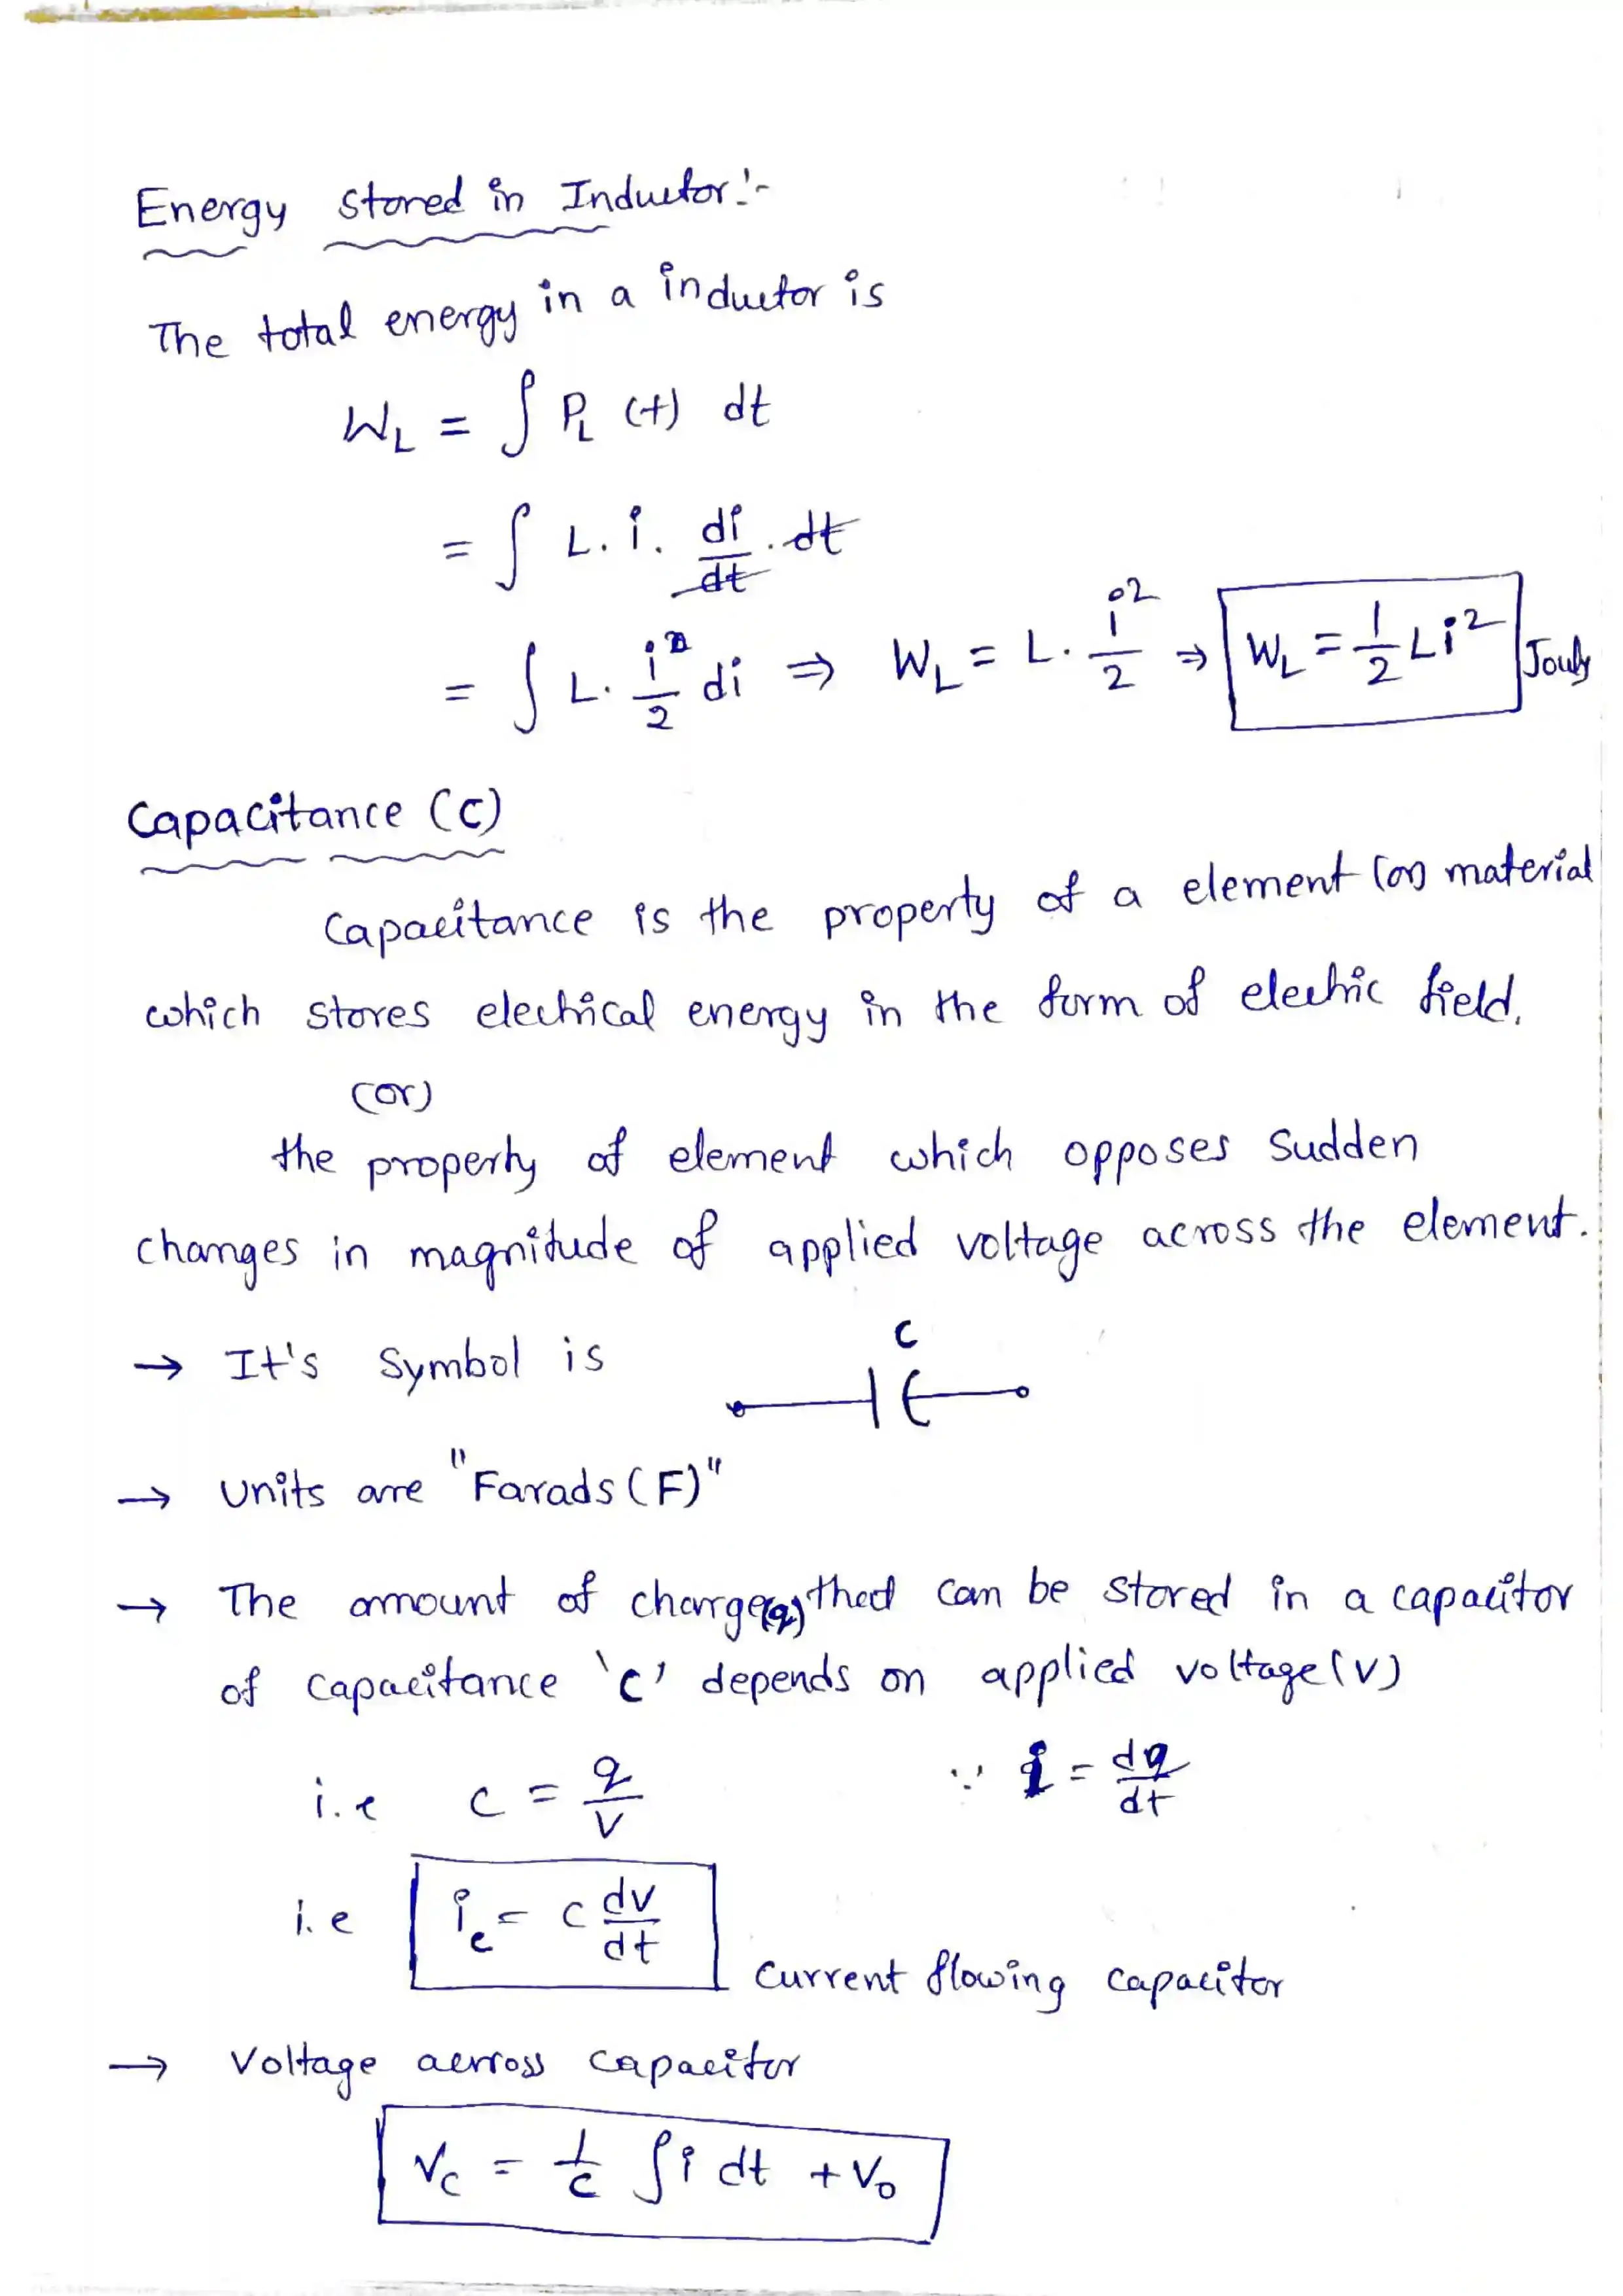 Energy stored in Inductor:-
The total energy in a inductor is
W_L = ∫ P_L (t) dt
= ∫ L. i. di/dt . dt
= ∫ L. i²/2 di ⇒ W_L = L. i²/2 ⇒ W_L = 1/2 Li² Jouls
Capacitance (C)
Capacitance is the property of a element (or) material
which stores electrical energy in the form of electric field.
(or)
the property of element which opposes sudden
changes in magnitude of applied voltage across the element.
→ It's Symbol is
C
→ Units are "Farads (F)"
→ The amount of charge(q) that can be stored in a capacitor
of capacitance 'C' depends on applied voltage (V)
i.e C = q/V ∵ i = dq/dt
i.e i_c = C dv/dt
Current flowing capacitor
→ Voltage across capacitor
V_C = 1/C ∫ i dt + V_0